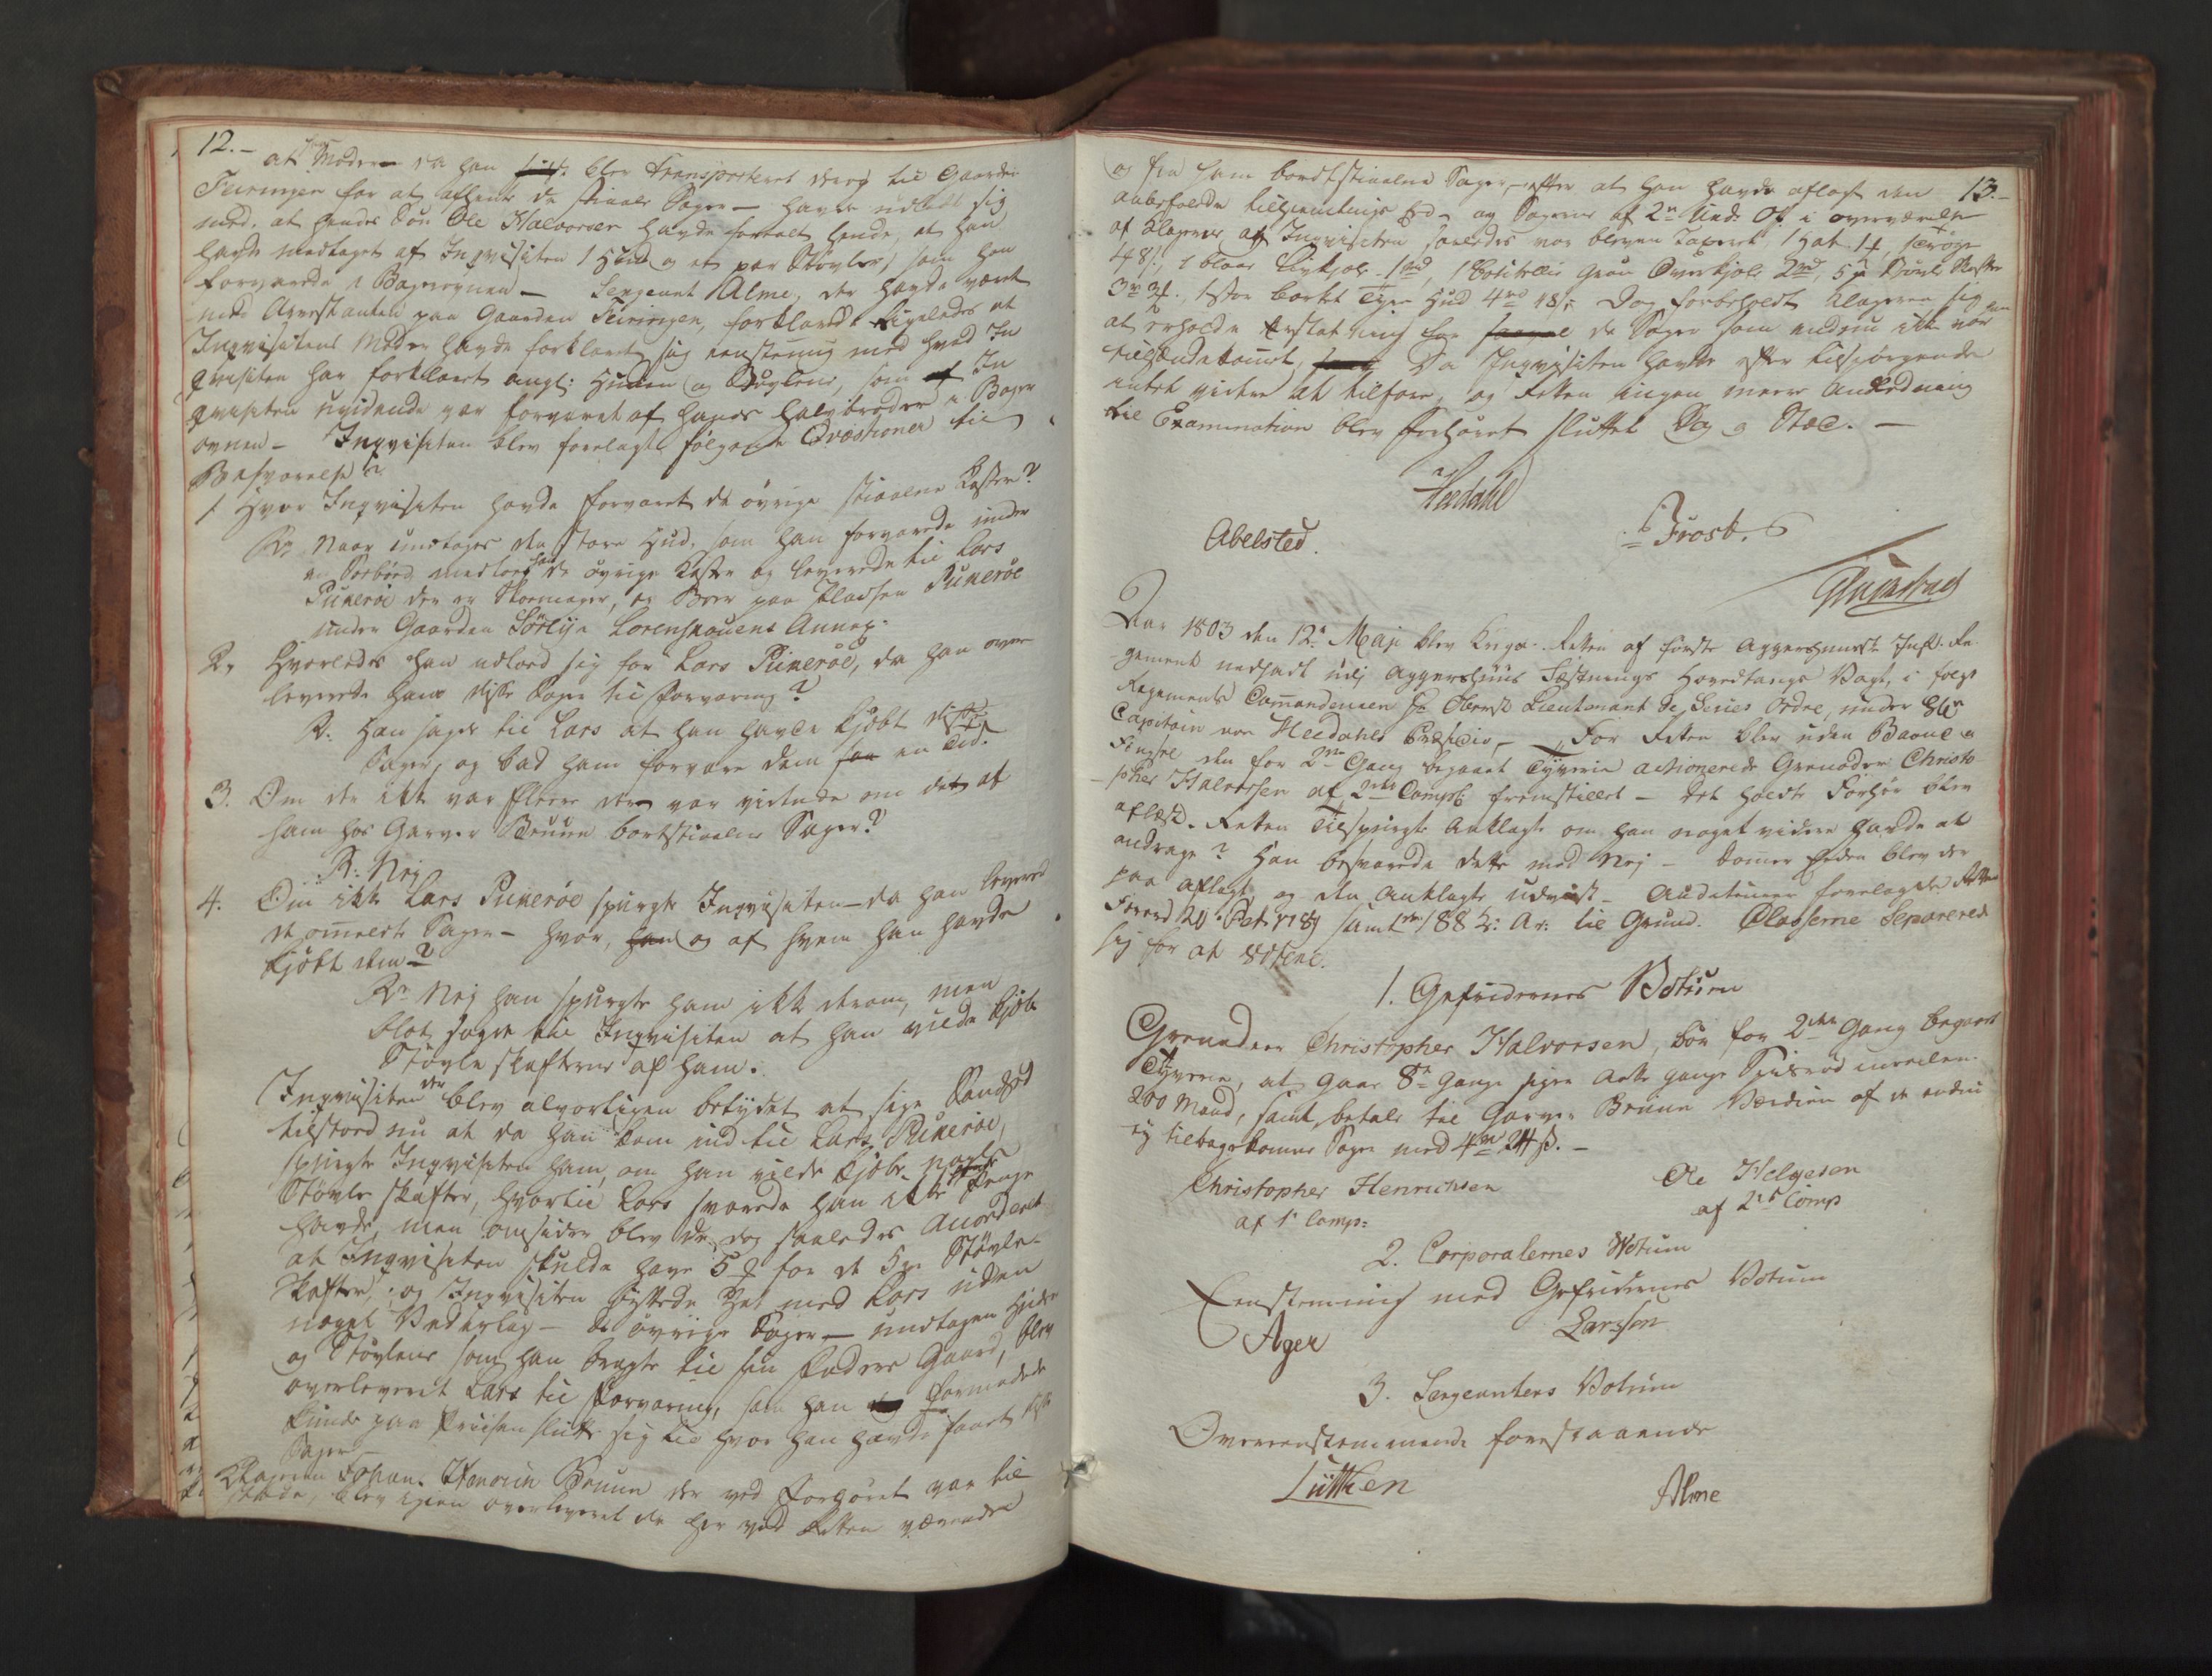 12.-
at hans Moder - da han blev transporteret derop til Gaarden
Teiringen for at afhente de stiaalne Sager - havde udladt sig
med, at hendes Søn Ole Halvorsen havde fortalt hende, at han
havde modtaget af Inqvisiten 1 Hud og et par Støvler, som han
forvarede i Bagerovnen - Sergeant Alme, der havde været
med Arrestanten paa Gaarden Teiringen, forklarede ligeledes at
Inqvisitens Moder havde forklaret sig eenstemmig med hvad In
qvisiten har forklaret angl: Huden og Støvlene, som In
qvisiten uvidende var forvaret af hans Halvbroder i Bager
ovnen - Inqvisiten blev forelagt følgende Qvæstioner til
Besvarelse
1 Hvor Inqvisiten havde forvaret de øvrige stiaalne Koster?
R: Naar undtages den store Hud, som han forvarede under
en medtog han de øvrige Koster og leverede til Lars
Pukerøe der er Skoemager, og Boer paa Pladsen Pukerøe
under Gaarden Sørlije Lorenskougens Annex.
2. Hvorledes han udlod sig for Lars Pukerøe, da han over
leverede ham disse Sager til Forvaring?
R: Han sagde til Lars at han havde kjøbt disse
Sager, og bad ham forvare dem en Tid.
3. Om der ikke var fleere der var vidende om det af
ham hos Garver Bruun bortstiaalne Sager?
R: Nej
4. Om ikke Lars Pukerøe spurgte Inqvisiten - da han leverede
de ommeldte Sager - hvor, og af hvem han havde
kjøbt dem?
R: Nej han spurgte ham ikke derom, men
blot sagde til Inqvisiten at han vilde kjøbe
Støvleskafterne af ham.
Inqvisiten der blev alvorligen betydet at sige Sandhed
tilstoed nu at da han kom ind til Lars Pukerøe,
spurgte Inqvisiten ham, om han vilde kjøbe nogle
Støvle skafter, hvortil Lars svarede han ikke Penge
havde, men omsider blev de dog saaledes accorderet
at Inqvisiten skulde have 5 for de 5 par Støvle-
Skafter, og Inqvisiten byttede Hat med Lars uden
noget Vederlag - de øvrige Sager - undtagen Huden
og Støvlene som han bragte til sin Faders Gaard, blev
overleveret Lars til Forvaring, som han formodede
kunde paa Priisen slutte sig til hvor han havde faaet disse
Sager -
Klageren Johan Henrich Bruun der ved Forhøret var til
stæde, blev igjen overleveret de her ved Retten værende
13.-
og fra ham bortstiaalne Sager, efter at han havde aflagt den
anbefalede Tilhiemlings Eed - og Sagerne af 2de Und: Off: i overværelse
af Klageren og Inqvisiten saaledes var bleven Taxeret, 1 Hat 1
48 s, 1 blaae Livkjole 1 rd, 1 grøn Overkjole 2 rd, 5 par Støvle Skafter
3 rd, 1 stor barket Hud 4 rd 48 s. Dog forbeholdt Klageren sig
at erholde Erstatning for de Sager som endnu ikke var
tilstædekommet, Da Inqvisiten havde efter tilspørgende
intet videre at tilføre, og Retten ingen meere Anledning
til Examination blev Forhøret sluttet Dag og Sted. -
Heidahl
Abelsted.
Frost.
Aar 1803 den 12te Maji blev Krigs-Retten af første Aggershuusske Inft: Re
gement nedsadt udj Aggershuus Fæstnings Hovedtangs Vagt, i følge
Regiments Commandeuren Hr Oberst Lieutenant de Seues Ordre, under Hr
Capitain von Heidahls Præsidio, - For Retten blev uden Baand og
Fængsel den for 2den Gang begaaet Tyverie actionerede Grenadeer Christo
-pher Halvorsen af 2det Comp: fremstillet - Det holdte Forhør blev
oplæst. Retten tilspurgte Anklagte om han noget videre havde at
andrage? Han besvarede dette med Nej - Domer Eeden blev der
paa aflagt og den Anklagte udviist - Auditeuren forelagde Retten
Forord 20 Febr 1789 samt 188 K: Ar: til Grund. Classerne Separerede
sig for at votere.
1. Gefreidernes Votum
Grenadeer Christopher Halvorsen, bør for 2den Gang begaaet
Tyverie, at gaae 8te Gange siger Aatte Gange Spidsrod imellem
200 Mand, samt betale til Garver Bruun Værdien af de endnu
ej tilbagekomne Sager med 4 rd 24 s. -
Christopher Henrichsen
af 1te Comp:
Ole Helgesen
af 2det Comp
2. Corporalernes Votum
Eenstemmig med Gefreidernes Votum
Ager
Larssen
3. Sergeanters Votum
Overeenstemmende forestaaende
Lütken
Alme